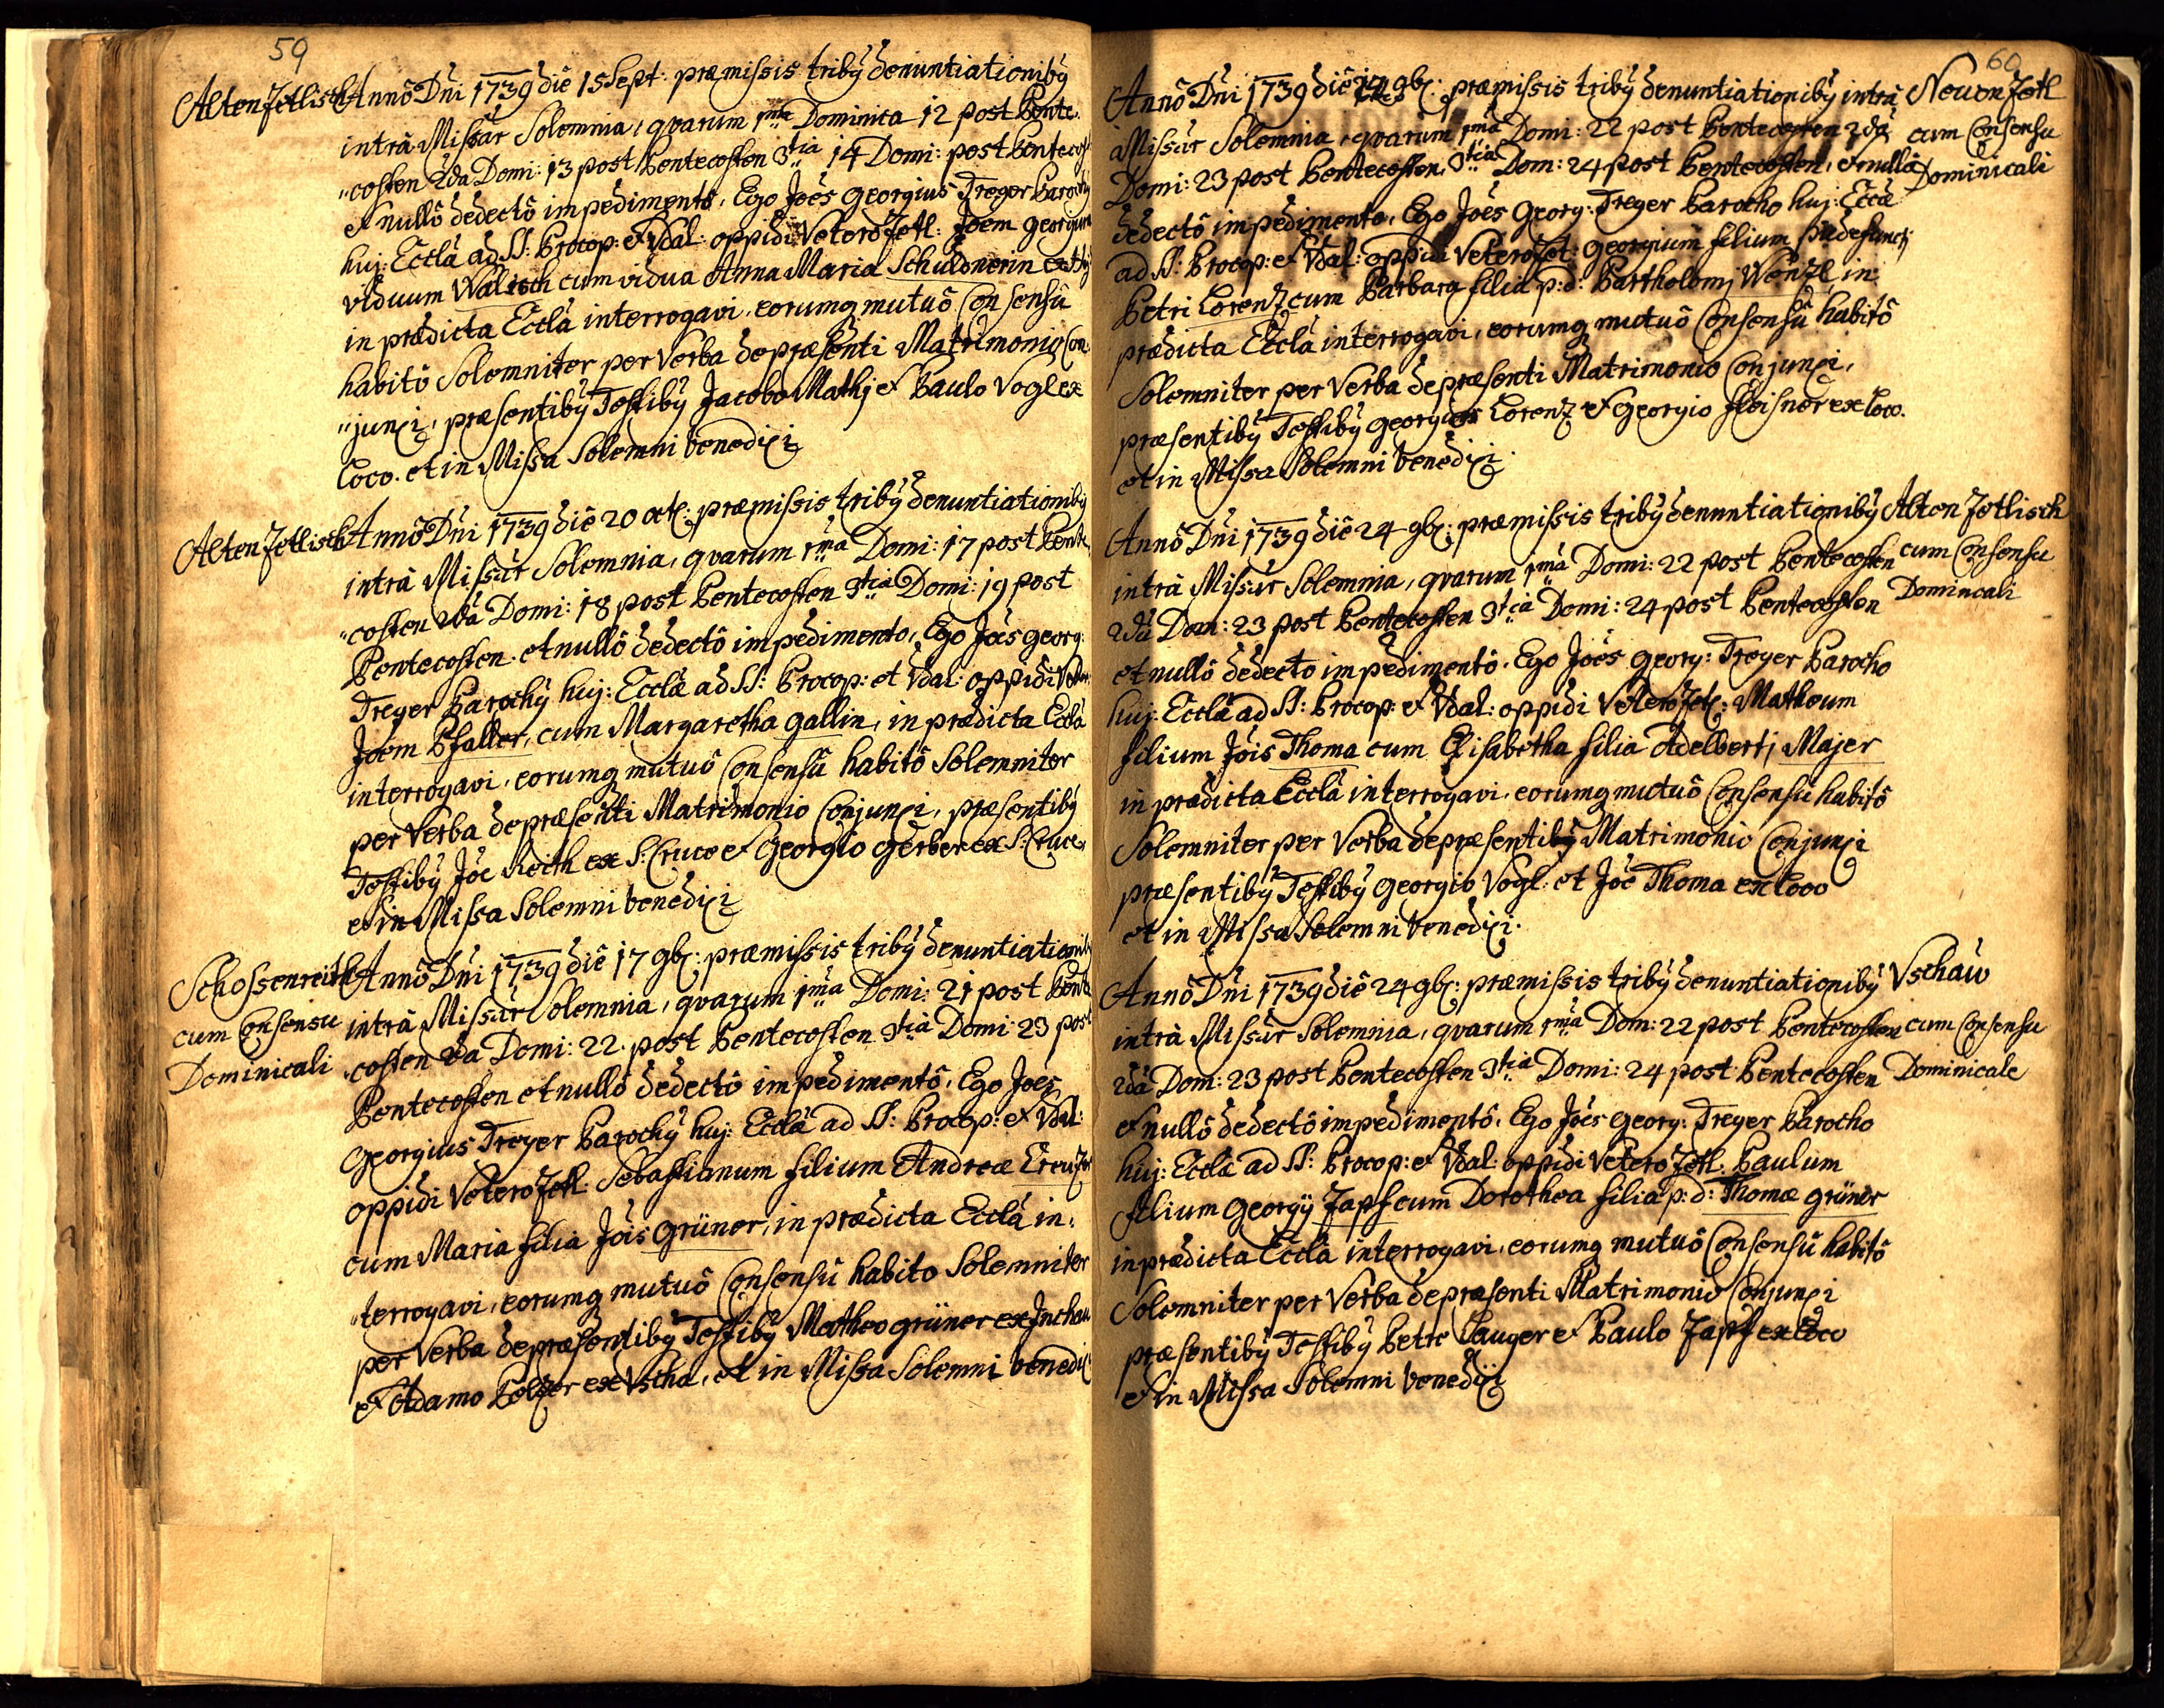 59
Alten Zetlisch Annô Dni 1739 diê 15 Sept: præmissis tribÿ denuntiationibÿ
intrà Missar Solemnia, qvarum 1ma Dominica 12 post Pente-
"costen 2da Domi: 13 post Pentecosten 3tia 14 Domi: post Pentecost
et nullô dedectô impedimentô, Ego Joês Georgius Treger Parochÿ
huj: Ecclâ ad SS: Procop: et Vdal: oppidi Vetero Zetl: Joem Georgium
viduum Walisch cum vidua Anna Maria Schuldnerin
in prædicta Ecclâ interrogavi, eorumq mutuô Consensû
habitô Solemniter per Verba depræsenti Matrimonio Con-
"junxi, præsentibÿ Testibÿ Jacobo Mathj et Paulo Vogl ex
loco. et in Missa Solemni benedixi
Alten Zetlisch Annô Dni 1739 diê 20 oct: præmissis tribÿ denuntiationibÿ
intrà Missar Solemnia, qvarum 1ma Domi: 17 post Pente-
"costen 2da Domi: 18 post Pentecosten 3tia Domi: 19 post
Pentecosten. et nullô dedectô impedimento, Ego Joês Georg:
Treger Parochÿ huj: Ecclâ ad SS: Procop: et Vdal: oppidi Vetero:
Joem Pfaller, cum Margaretha Gallin, in prædicta Ecclâ
interrogavi, eorumq mutuô Consensû habitô Solemniter
per Verba depræsenti Matrimonio Conjunxi, præsentibÿ
Testibÿ Joê Reith ex S: Cruce et Georgio Gerber ex S: Cruce,
et in Missa Solemni benedixi
Schossenreith Annô Dni 1739 diê 17 9b: præmissis tribÿ denuntiationibÿ
cum Consensu intrà Missar Solemnia, qvarum 1ma Domi: 21 post Pente
Dominicali costen 2da Domi: 22. post Pentecosten 3tia Domi: 23 post
Pentecosten et nullô dedectô impedimentô, Ego Joês
Georgius Treger Parochÿ huj: Ecclâ ad SS: Procop: et Vdal:
oppidi Vetero Zetl: Sebastianum filium Andreæ Creuzer
cum Maria filia Jôis Grüner, in prædicta Ecclâ in-
"terrogavi, eorumq mutuô Consensû habito Solemniter
per Verba depræsentibÿ Testibÿ Matheo Grüner ex
et Adamo Pelzer ex Vscha, et in Missa Solemni benedixi
60
Annô Dni 1739 diê 9b: præmissis tribÿ denuntiationibÿ intrà Neuen Zetl
Missar Solemnia, qvarum 1ma Domi: 22 post Pentecosten 2da cum Consensu
Domi: 23 post Pentecosten, 3tia Dom: 24 post Pentecosten, et nullô Dominicali
dedectô impedimento, Ego Joês Georg: Treger Parocho huj: Ecclâ
ad SS: Procop: et Vdal: oppidi Vetero Zet: Georgium filium p: defuncti
Petri Lorenz cum Barbara filia p: d: Bartholomj Wenzl, in
prædicta Ecclâ interrogavi, eorumq mutuô Consensû habitô
Solemniter per Verba depræsenti Matrimonio Conjunxi,
præsentibÿ Testibÿ Georgio Lorenz et Georgio Fleisner ex loco.
et in Missa Solemni benedixi.
Annô Dni 1739 diê 24 9b: præmissis tribÿ denuntiationibÿ Alten Zetlisch
intrà Missar Solemnia, qvarum 1ma Domi: 22 post Pentecosten cum Consensu
2da Dom: 23 post Pentecosten 3tia Domi: 24 post Pentecosten Domincali
et nullô dedecto impedimentô. Ego Joês Georg: Treger Parocho
huj: Ecclâ ad SS: Procop: et Vdal: oppidi Vetero Zetl: Matheum
filium Jôis Thoma cum Elisabetha filia Adelbertj Majer
in prædicta Ecclâ interrogavi, eorumq mutuô Consensû habitô
Solemniter per Verba depræsentibÿ Matrimonio Conjunxi
præsentibÿ Testibÿ Georgio Vogl et Joê Thoma ex loco
et in Missa Solemni benedixi.
Annô Dni 1739 diê 24 9b: præmissis tribÿ denuntiationibÿ Vschaw
intrà Missar Solemnia, qvarum 1ma Dom: 22 post Pentecosten cum Consensu
2da Dom: 23 post Pentecosten 3tia Domi: 24 post Pentecosten Dominicale
et nullô dedectô impedimentô. Ego Joês Georg: Treger Parocho
huj: Ecclâ ad SS: Procop: et Vdal: oppidi Vetero Zetl: Paulum
filium Georgÿ Zapf cum Dorothea filia p: d: Thomæ Grüner
in prædicta Ecclâ interrogavi, eorumq mutuô Consensû habitô
Solemniter per Verba depræsenti Matrimonio Conjunxi
præsentibÿ Testibÿ Petro Sauger et Paulo Zapf ex loco
et in Missa Solemni benedixi